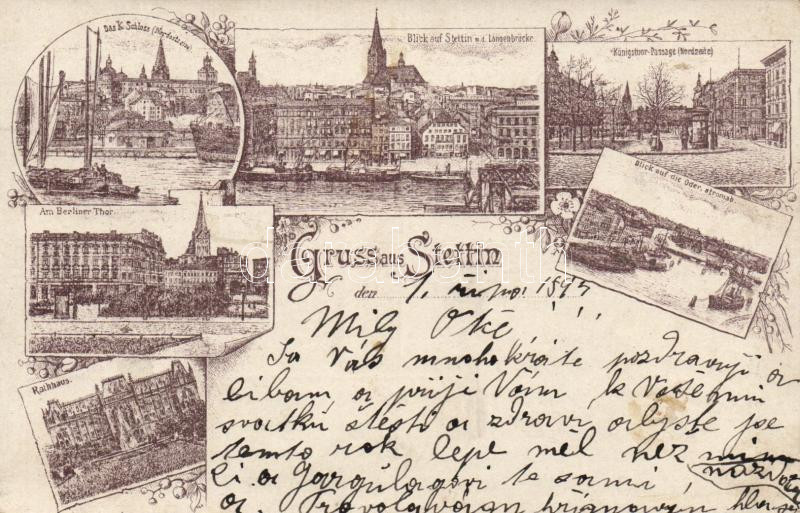 Das K. Schloss (Nordostseite)
Blick auf Stettin v. d. Langenbrücke.
Königsthor-Passage (Nordseite)
Blick auf die Oder, stromab.
Am Berliner Thor.
Gruss aus Stettin
den 1. října 189
Milý
Ja Vás mnohokráte pozdravuji a
líbam a přiji Vám k Vašemu
svatku štěsti a zdravi abyste se
temto rok lepe měl než
li a te sami
a.
Rathhaus.